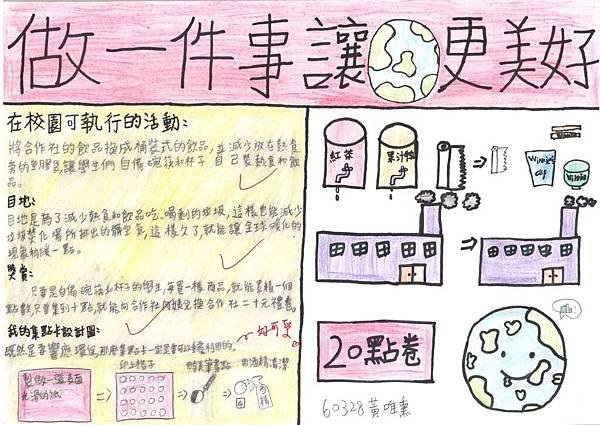 做一件事讓更美好
在校園可執行的活動:
將合作社的飲品換成桶裝式的飲品,並減少放在熱食
旁的塑膠袋,讓學生們自備碗筷和杯子自己裝熱食和飲
品。
目地:
目地是為了減少熱食和飲品吃、喝剩的垃圾,這樣也能減少
垃圾焚化場所排出的髒空氣,這樣久了,就能讓全球暖化的
現象稍緩一點。
獎賞:
只要是自備碗筷和杯子的學生,每買一樣商品,就能累積一個
點數,只要集到十點,就能向合作社阿姨兌換合作社二十元禮卷。
我的集點卡設計圖:
既然是要響應環保,那麼集點卡一定是要可以重複利用的。
製做一張表面
光滑的紙
印上格子
用酒精清潔
酒精
紅茶
果汁
Winnie's
cup
Winnie
20點卷
60328 黃唯熏